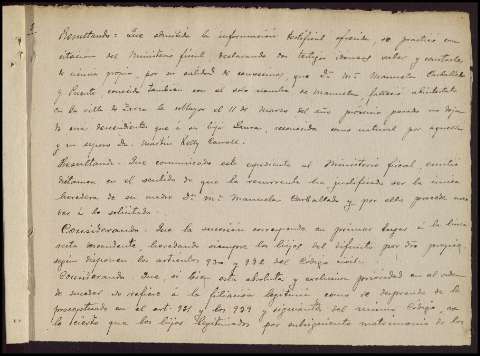 Resultando: Que admitida la información testifical ofrecida, se practicó con
citación del Ministerio fiscal, declarando dos testigos saber y constarles
de ciencia propia, por su calidad de convecinos, que Dª Mª Manuela Carballada
y Puente conocida tambien con el solo nombre de Manuela falleció abintestato
en la villa de el 11 de Marzo del año próximo pasado no dejan
do mas descendientes que á su hija Laura, reconocida como natural por aquella
y su esposo Dn. Martin Kelly
Resultando: Que comunicado este expediente al Ministerio fiscal, emitió
dictamen en el sentido de que la recurrente ha justificado ser la única
heredera de su madre Dª Mª Manuela Carballada y por ello procede acce
der á lo solicitado.
Considerando: Que la sucesión corresponde en primer lugar á la línea
recta descendente, heredando siempre los hijos del difunto por dro propio,
según disponen los artículos 930 y 932 del Código civil.
Considerando: Que, si bien esta absoluta y exclusiva prioridad en el orden
de suceder se refiere á la filiación legítima como se desprende de lo
preceptuado en el art. 931 y los 939 y siguientes del mismo Código, es
lo cierto que los hijos legitimados por subsiguiente matrimonio de los